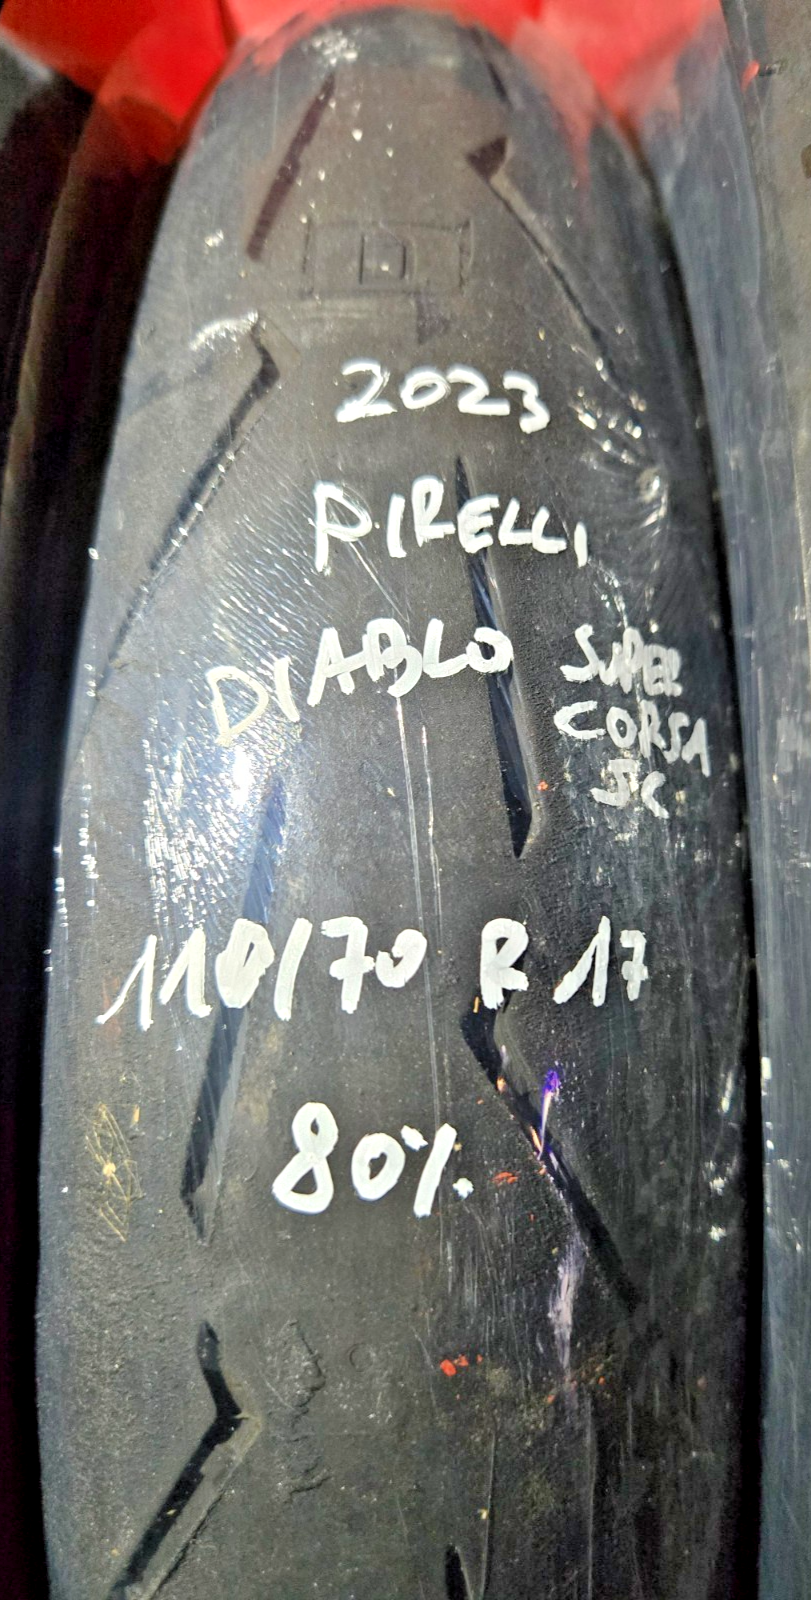 2023
PIRELLI
DIABLO
SUPER
CORSA
SC
110/70 R 17
80%